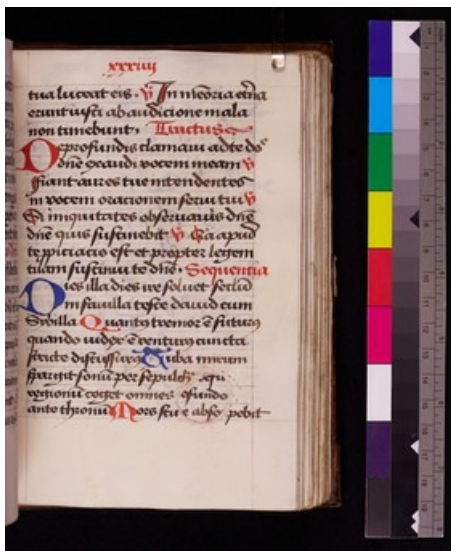 xxxiiij
tua luceat eis. ꝟ In memoria et̄na
erunt iusti ab audicione mala
non timebunt. Tractus
De profundis clamaui ad te do
dn̄e exaudi vocem meam ꝟ
ffiant aures tue intendentes
in vocem oracionem serui tui ꝟ
Si iniquitates obseruaris dn̄e
dn̄e quis sustinebit ꝟ Q̄a apud
te ppiciacio est et propter legem
tuam sustinui te dn̄e. Sequentia
Dies illa dies ire soluet sec̄lū
in fauilla teste dauid cum
Sibilla Quantꝯ tremor ē futurꝯ
quando iudex ē venturꝯ cuncta
stricte discussurꝯ Tuba mirum
spargit sonū per sepulch̄
regionū coget omnes
ante thronū Mors